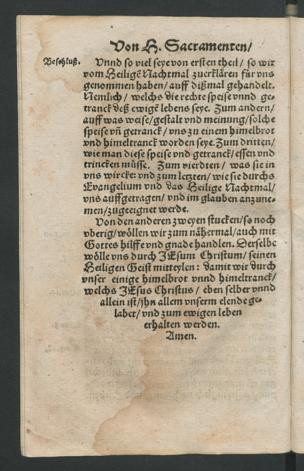 Von H. Sacramenten/
Beschluß.
Vnnd so viel seye von ersten theil/ so wir
vom Heiligẽ Nachtmal zuerklären für vns
genommen haben/ auff dißmal gehandelt.
Nemlich/ welchs die rechte speise vnnd ge-
tranck deß ewigẽ lebens seye. Zum andern/
auff was weise/ gestalt vnd meinung/ solche
speise vñ getranck/ vns zu einem himelbrot
vnd himeltranck worden seye. Zum dritten/
wie man diese speis vnd getranck/ essen vnd
trincken müsse. Zum vierdten/ was sie in
vns wircke: vnd zum letzten/ wie sie durchs
Evangelium vnd das Heilige Nachtmal/
vns auffgetragen/ vnd im glauben anzune-
men/ zugeeignet werde.
Von den anderen zweyen stucken/ so noch
vberig/ wöllen wir zum nähermal/ auch mit
Gottes hilffe vnd gnade handlen. Derselbe
wölle vns durch JEsum Christum/ seinen
Heiligen Geist mitteylen: damit wir durch
vnser einige himelbrot vnnd himeltranck/
welchs JEsus Christus/ eben selber vnnd
allein ist/ jhn allem vnserm elende ge-
labet/ vnd zum ewigen leben
erhalten werden.
Amen.